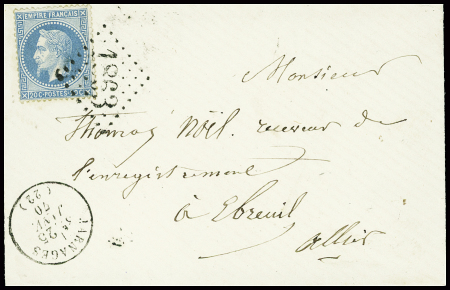 EMPIRE FRANÇAIS
20 C POSTES 20 C
1863
Monsieur
Thomas Noël, receveur de
l'enregistrement
à Ebreuil
Allier
JARNAGES
25
JANV
70
(22)